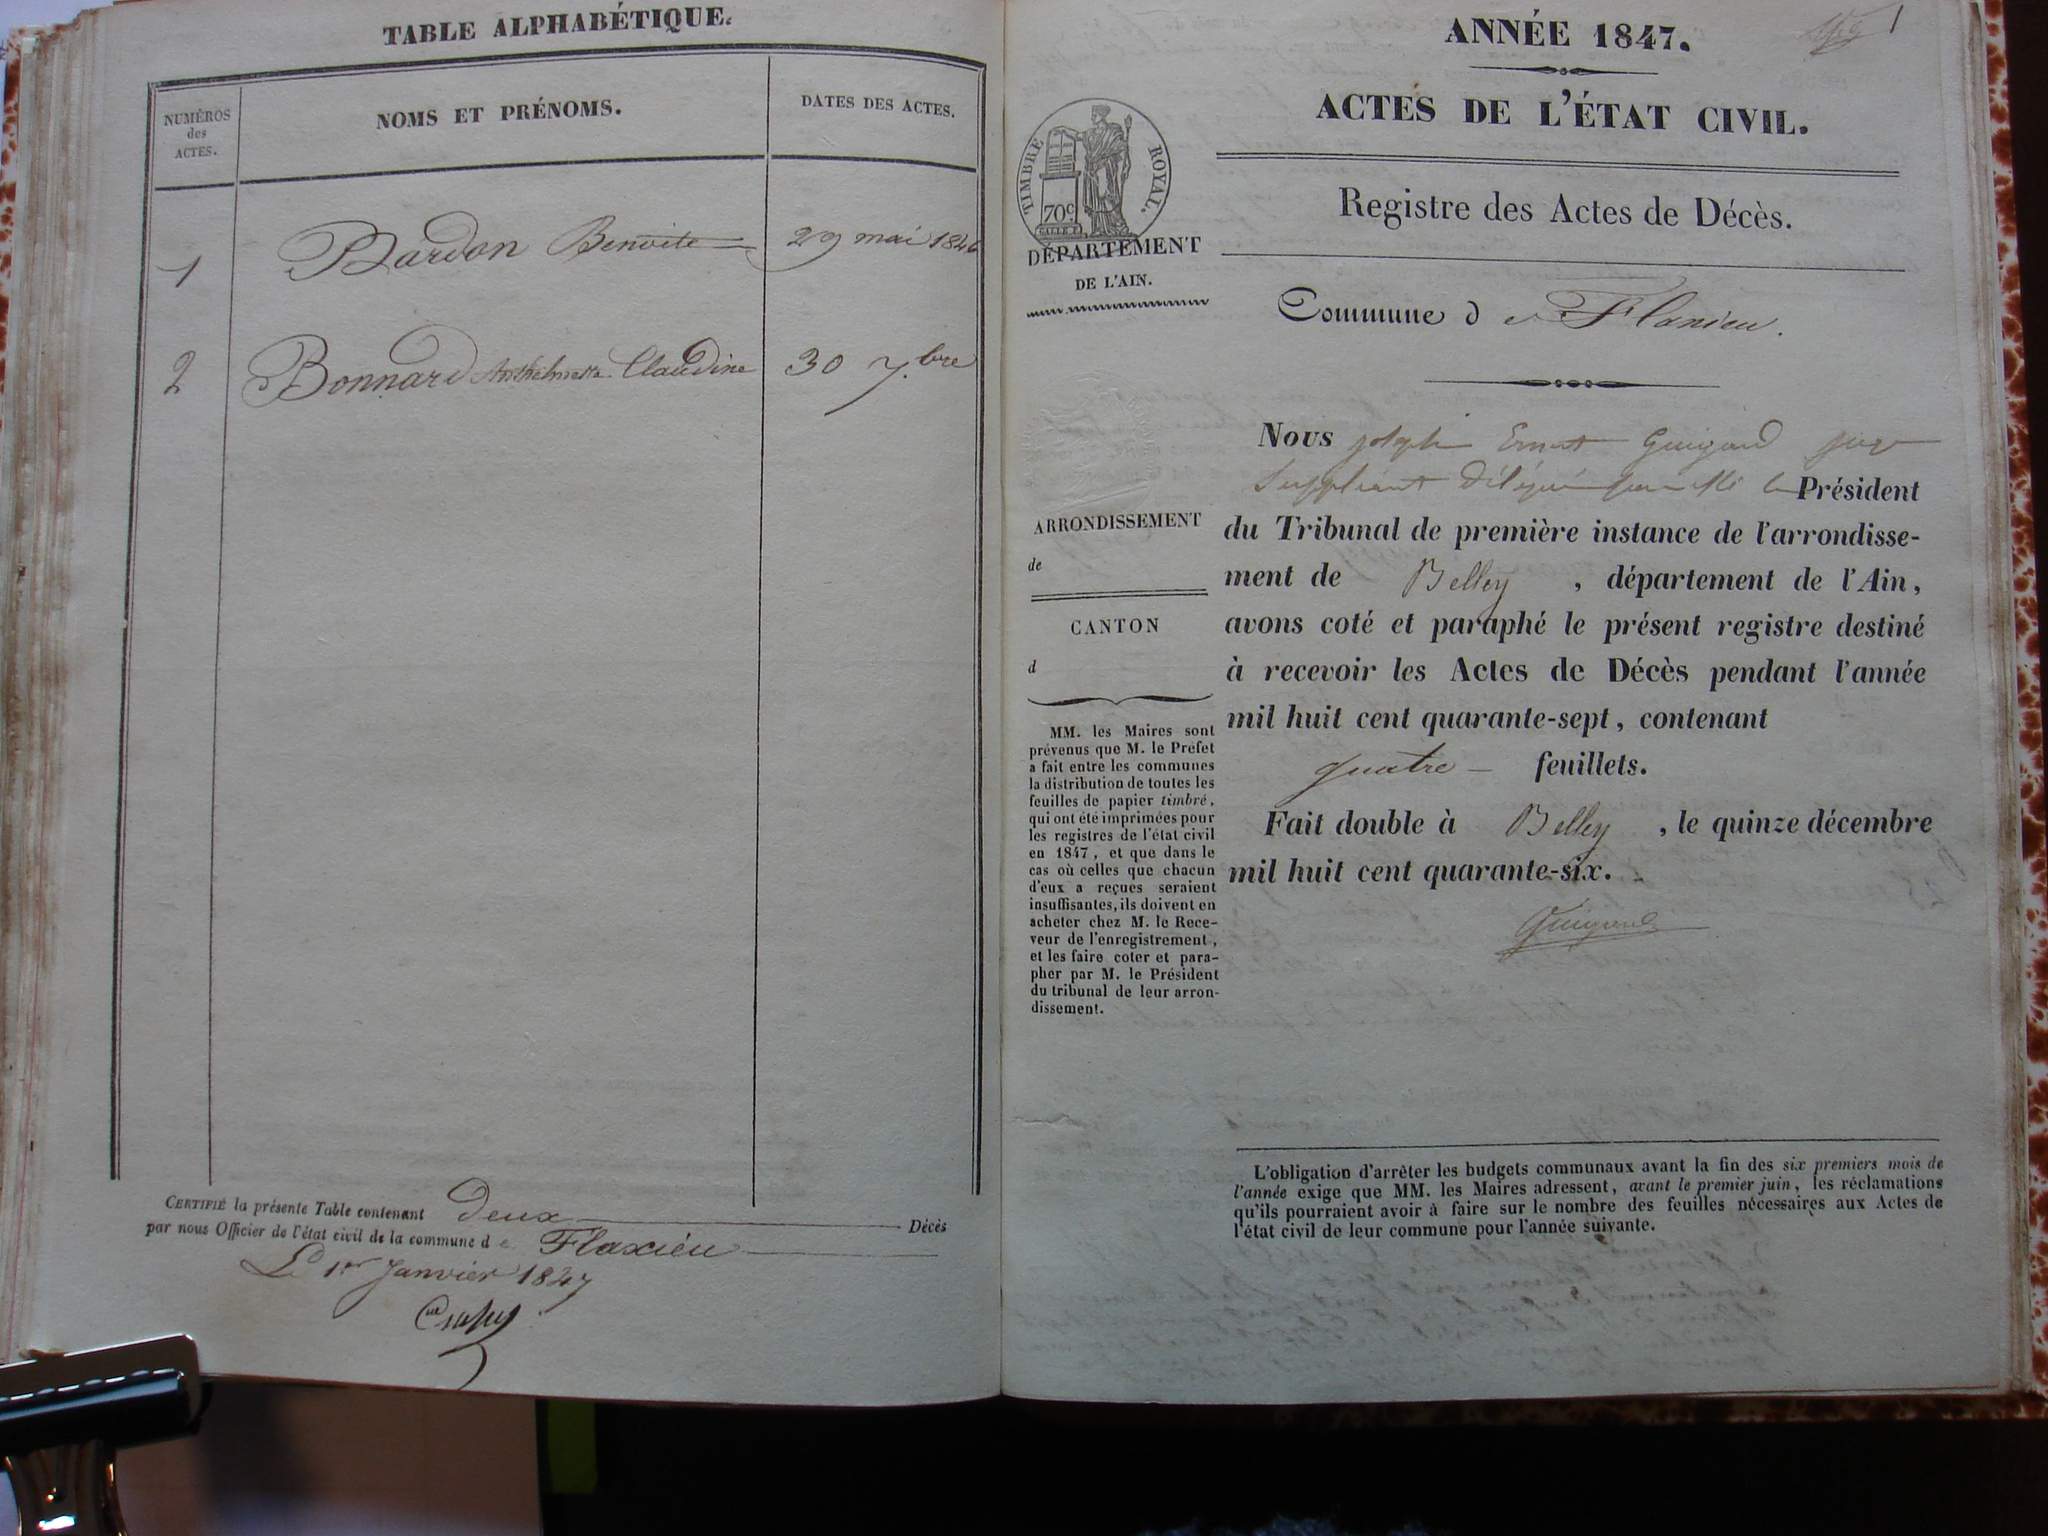 TABLE ALPHABÉTIQUE.
NUMÉROS
des
ACTES.
NOMS ET PRÉNOMS.
DATES DES ACTES.
1 Bardon Benoite 29 mai 1846
2 Bonnard Anthelmette Claudine 30 7.bre
CERTIFIÉ la présente Table contenant deux Décès
par nous Officier de l'état civil de la commune de Flaxieu
Le 1er Janvier 1847
ANNÉE 1847.
1
ACTES DE L'ÉTAT CIVIL.
TIMBRE ROYAL.
70c.
DÉPARTEMENT
DE L'AIN.
Registre des Actes de Décès.
Commune de Flaxieu.
Nous Joseph Ernest Guigard juge
Suppléant délégué par Mr le Président
du Tribunal de première instance de l'arrondisse-
ment de Belley, département de l'Ain,
avons coté et paraphé le présent registre destiné
à recevoir les Actes de Décès pendant l'année
mil huit cent quarante-sept, contenant
quatre feuillets.
Fait double à Belley, le quinze décembre
mil huit cent quarante-six.
Guigard
ARRONDISSEMENT
de
CANTON
d
MM. les Maires sont
prévenus que M. le Préfet
a fait entre les communes
la distribution de toutes les
feuilles de papier timbré,
qui ont été imprimées pour
les registres de l'état civil
en 1847, et que dans le
cas où celles que chacun
d'eux a reçues seraient
insuffisantes, ils doivent en
acheter chez M. le Rece-
veur de l'enregistrement,
et les faire coter et para-
pher par M. le Président
du tribunal de leur arron-
dissement.
L'obligation d'arrêter les budgets communaux avant la fin des six premiers mois de
l'année exige que MM. les Maires adressent, avant le premier juin, les réclamations
qu'ils pourraient avoir à faire sur le nombre des feuilles nécessaires aux Actes de
l'état civil de leur commune pour l'année suivante.